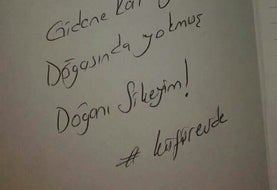 Gidene
Doğasında yokmuş
Doğanı Sikeyim!
# küfürevde